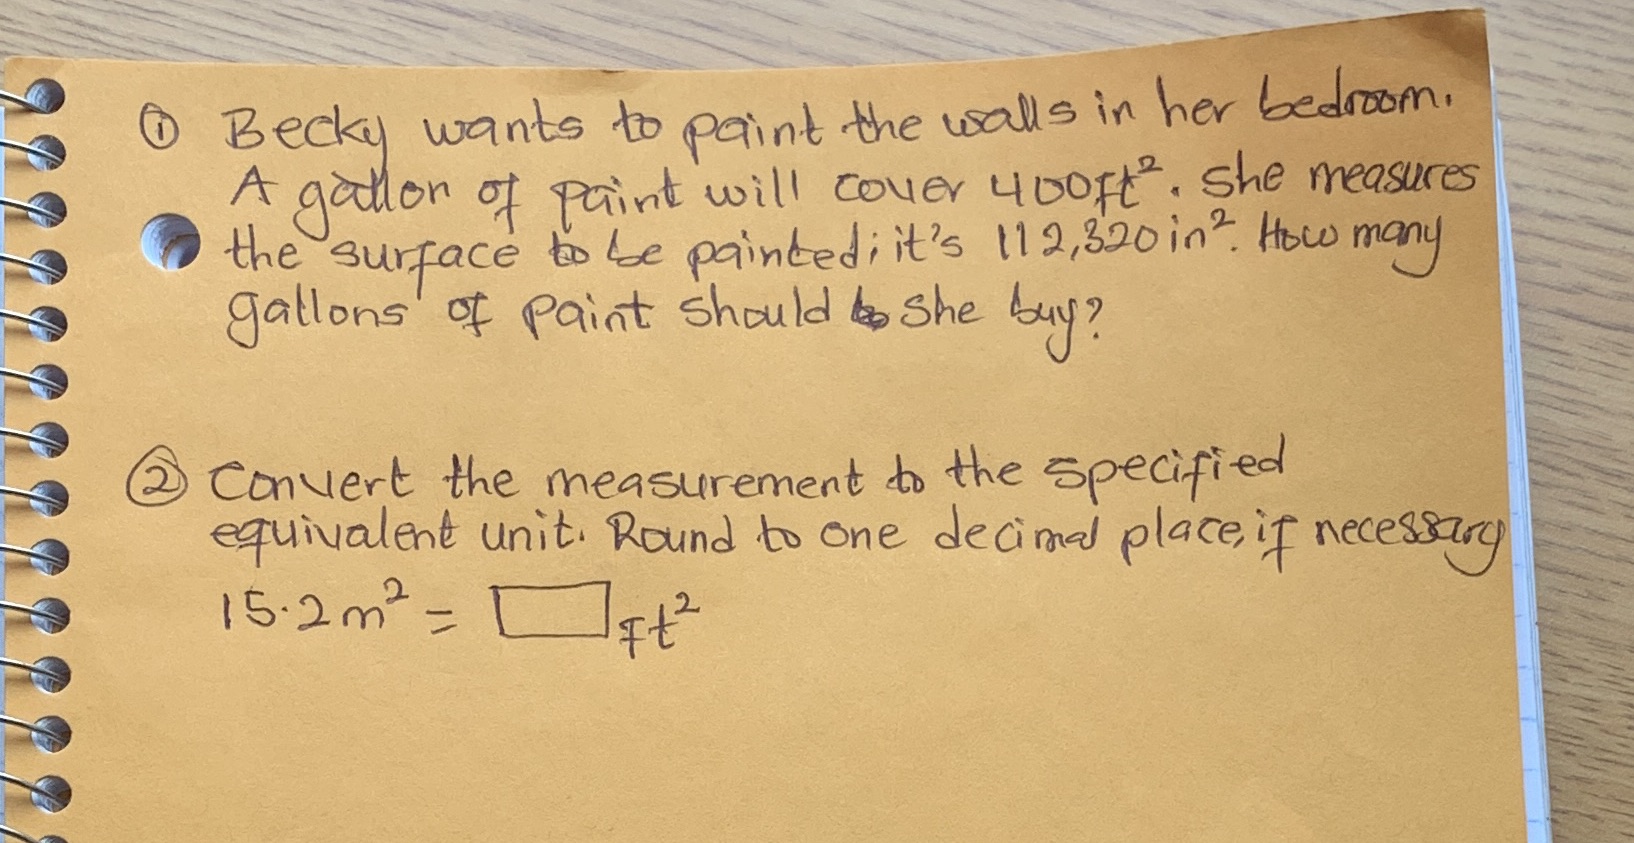 ① Becky wants to paint the walls in her bedroom.
A gallon of paint will cover 400ft². She measures
the surface to be painted; it's 112,320 in². How many
gallons of paint should she buy?
② Convert the measurement to the specified
equivalent unit. Round to one decimal place, if necessary
15.2 m² = □ ft²